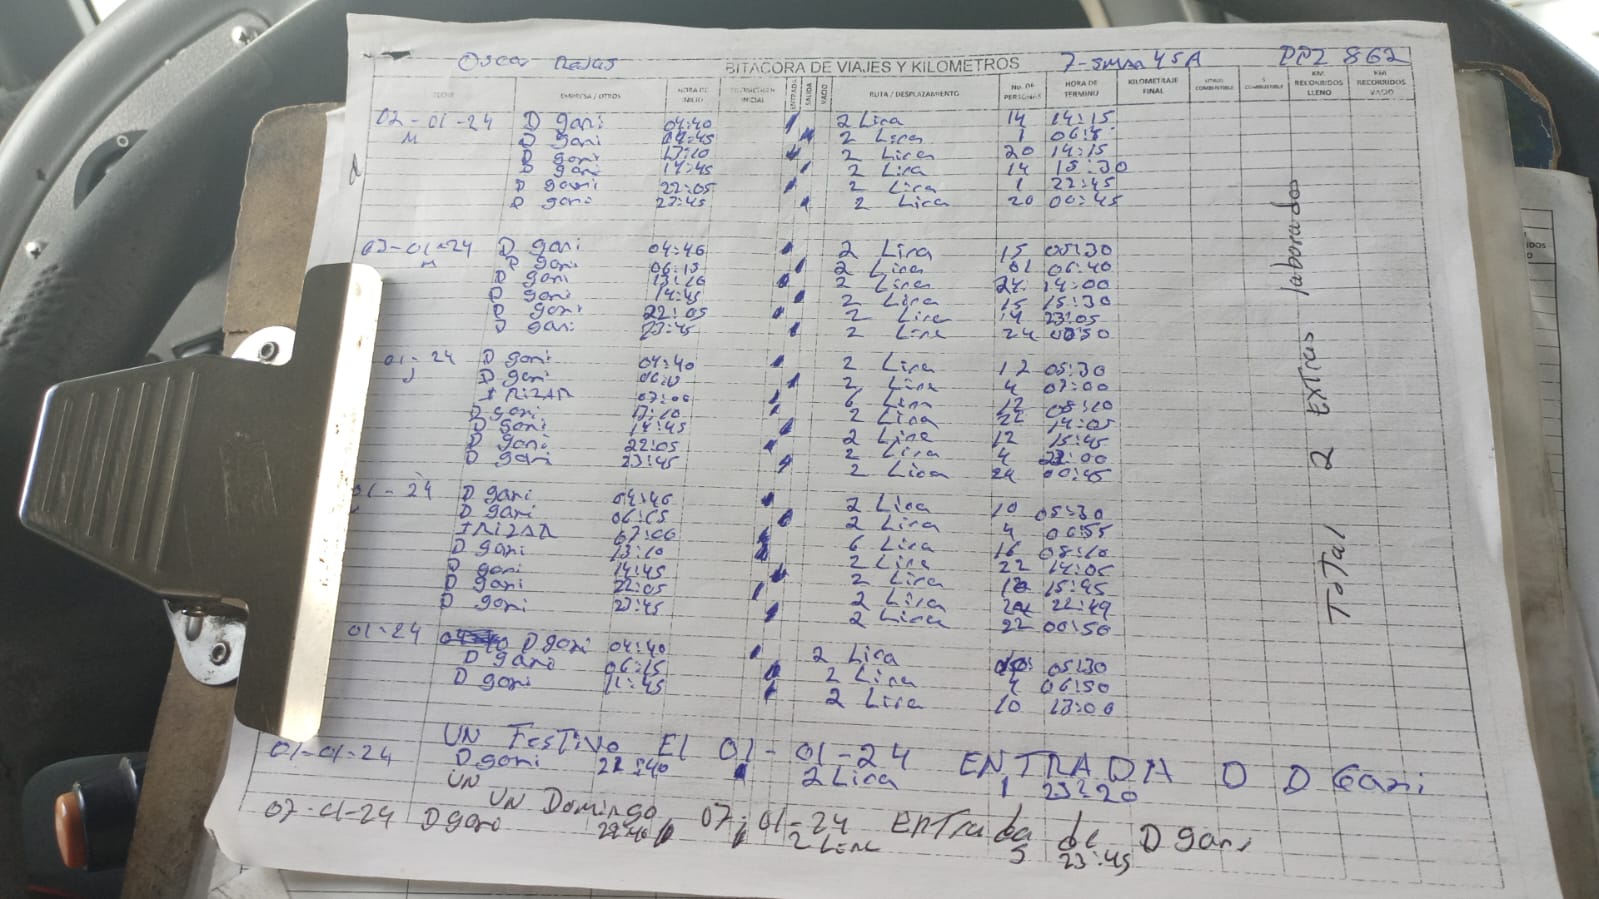 Oscar Rojas BITACORA DE VIAJES Y KILOMETROS 7-smna 45A PPZ 862
FECHA EMPRESA / OTROS HORA DE INICIO KILOMETRAJE INICIAL ENTRADA SALIDA VACIO RUTA / DESPLAZAMIENTO No. DE PERSONAS HORA DE TERMINO KILOMETRAJE FINAL LITROS COMBUSTIBLE $ COMBUSTIBLE KM RECORRIDOS LLENO KM RECORRIDOS VACIO
02-01-24 D gari 04:40 2 Lira 14 14:15
M D gari 2 Lira 1
D gari 13:10 2 Lira 20 14:15
D gari 14:45 2 Lira 14 15:30
D gari 22:05 2 Lira 1 22:45
D gari 23:45 2 Lira 20 00:45
03-01-24 D gari 04:40 2 Lira 15 05:30
M D gari 06:15 2 Lira 01 06:40
D gari 13:10 2 Lira 24 14:00
D gari 14:45 2 Lira 15 15:30
D gari 22:05 2 Lira 14 23:05
D gari 23:45 2 Lira 24
01-24 D gari 04:40 2 Lira 12 05:30
J D gari 2 Lira 4 07:00
IRIZAR 07:00 6 Lira 12 08:10
D gari 13:10 2 Lira 22 14:05
D gari 14:45 2 Lira 12 15:45
D gari 22:05 2 Lira 4
D gari 23:45 2 Lira 24 00:45
01-24 D gari 04:40 2 Lira 10 05:30
D gari 06:05 2 Lira 4 06:55
IRIZAR 07:00 6 Lira 16 08:10
D gari 13:10 2 Lira 22 14:05
D gari 14:45 2 Lira 15:45
D gari 22:05 2 Lira 22:49
D gari 23:45 2 Lira 22 00:50
01-24 D gari 04:40 2 Lira 05:30
D gari 06:15 2 Lira 4 06:50
D gari 11:45 2 Lira 10 13:00
UN Festivo El 01-01-24 ENTRADA D D Gari
01-01-24 D gari 22:40 2 Lira 1 23:20
UN
UN Domingo 07-01-24 Entrada de D gari
07-01-24 D gari 22:40 2 Lira 5 23:45
ToTal 2 Extras laborados